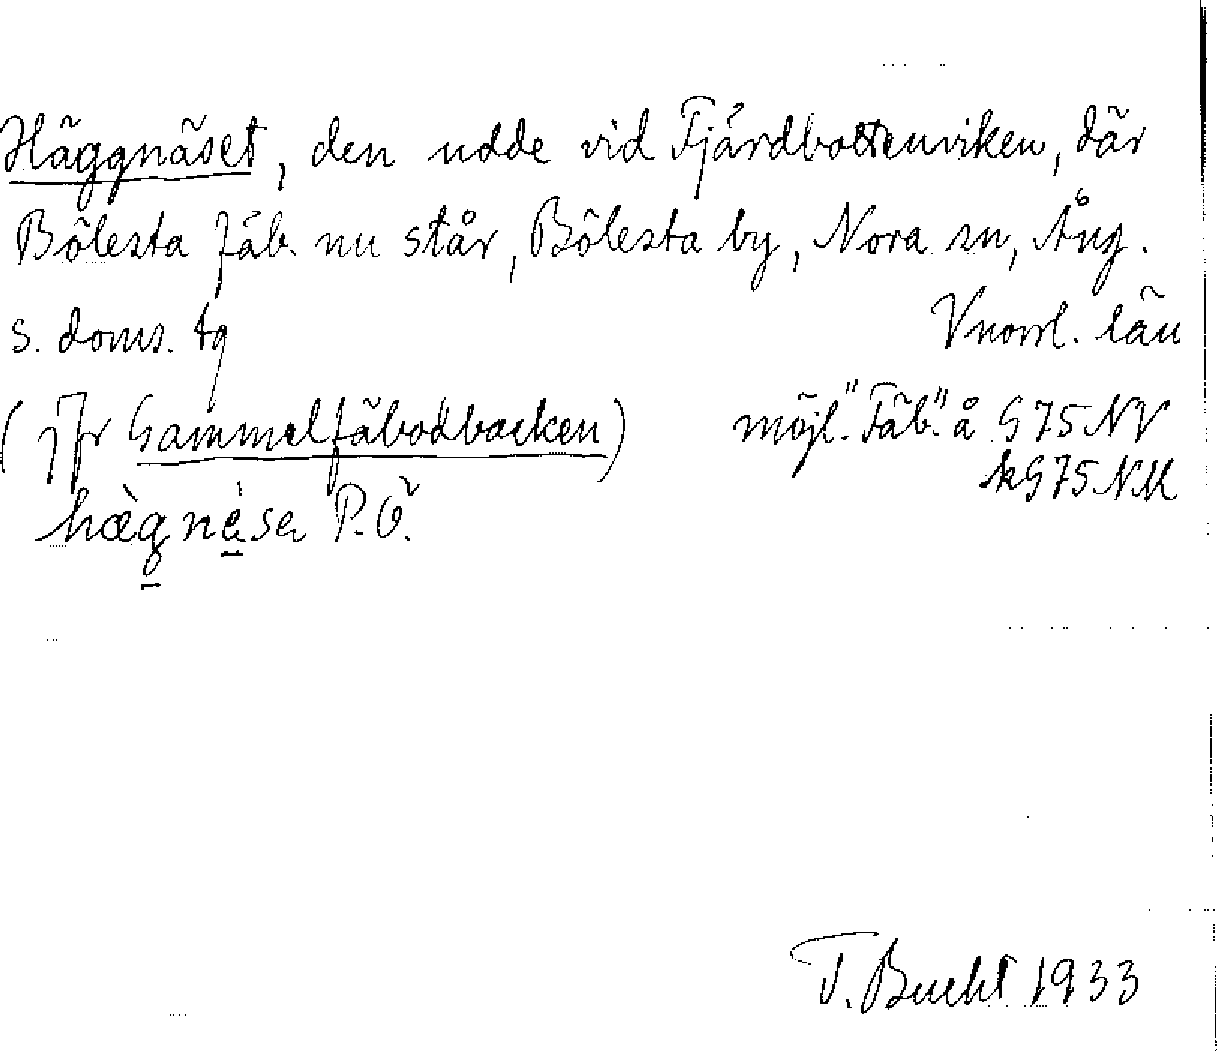 Häggnäset, den udde vid Fjärdbottenviken, där
Bölesta fäb. nu står, Bölesta by, Nora sn, Ång.
s. doms. tg Vnorrl. län
(jfr Gammelfäbodbacken) möjl. "Fäb." å G 75 NV
kG75 NM
hæ̀gnè̱sa P.Ö.
T. Bucht 1933